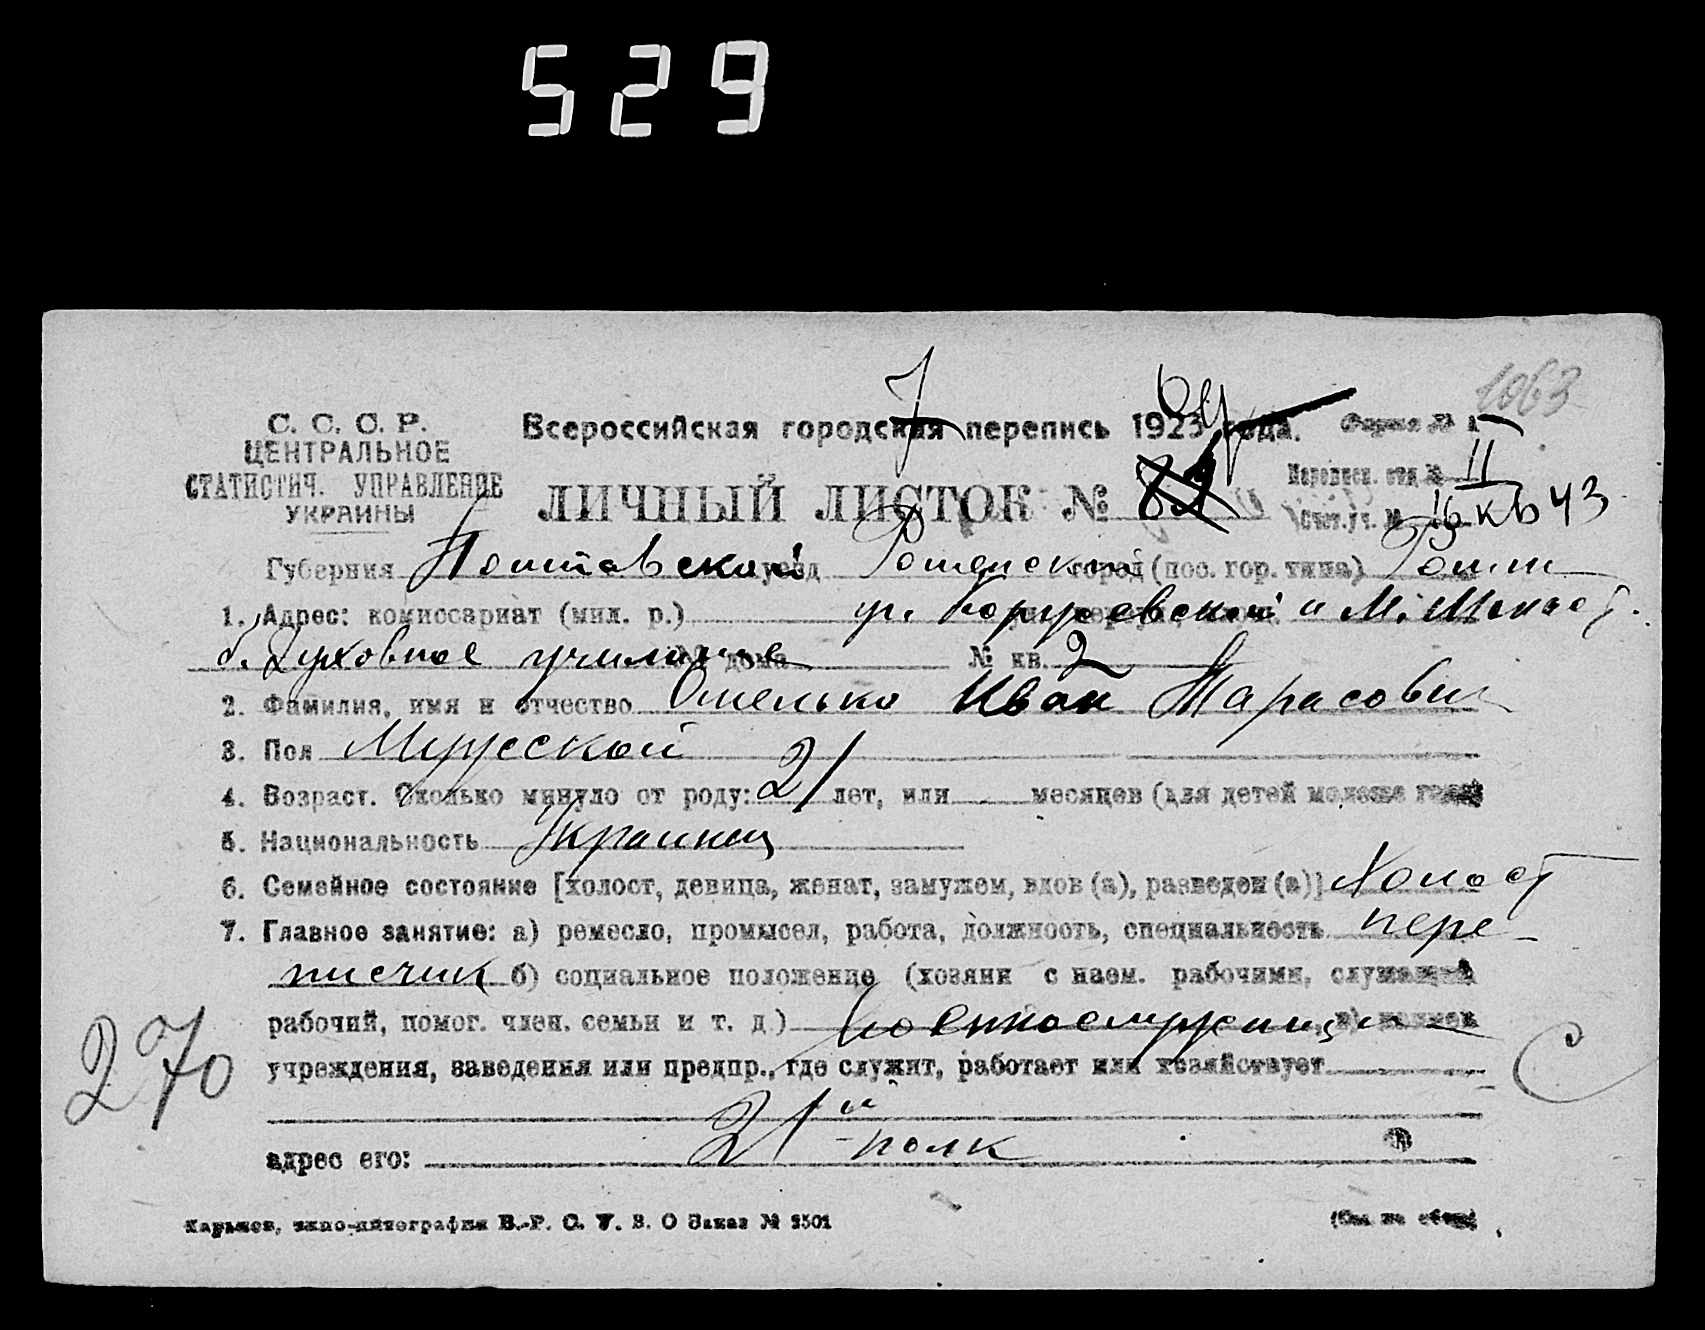 529
1063
С. С. С. Р.
ЦЕНТРАЛЬНОЕ
СТАТИСТИЧ. УПРАВЛЕНИЕ
УКРАИНЫ
Всероссийская городская перепись 1923 года.
Форма № 1
ЛИЧНЫЙ ЛИСТОК №
Переписн. отд № II
Счет. уч. № 16 кв 43
Губерния Полтавской уезд Роменский город (пос. гор. типа) Ромны
1. Адрес: комиссариат (мил. р.) уг. и М.
б. Духовное училище № дома № кв. 2
2. Фамилия, имя и отчество Омелько Иван Тарасович
3. Пол Мужской
4. Возраст. Сколько минуло от роду: 21 лет, или месяцев (для детей моложе года)
5. Национальность Украинец
6. Семейное состояние [холост, девица, женат, замужем, вдов (а), разведен (а)] Холост
7. Главное занятие: а) ремесло, промысел, работа, должность, специальность пере-
писчик б) социальное положение (хозяин с наем. рабочими, служащий
рабочий, помог. член. семьи и т. д.) военнослужащий в) наимен.
учреждения, заведения или предпр., где служит, работает или хозяйствует
21й полк
адрес его:
270
Харьков, типо-литография В.-Р. С. У. В. О Заказ № 2501
(См. на обор.)